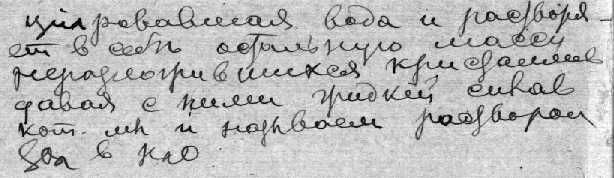 цировавшая вода и растворя-
ет в себѣ остальную массу
неразложившихся кристаллов
давая с ними жидкий сплав
кот. мы и называем раствором
в H₂O